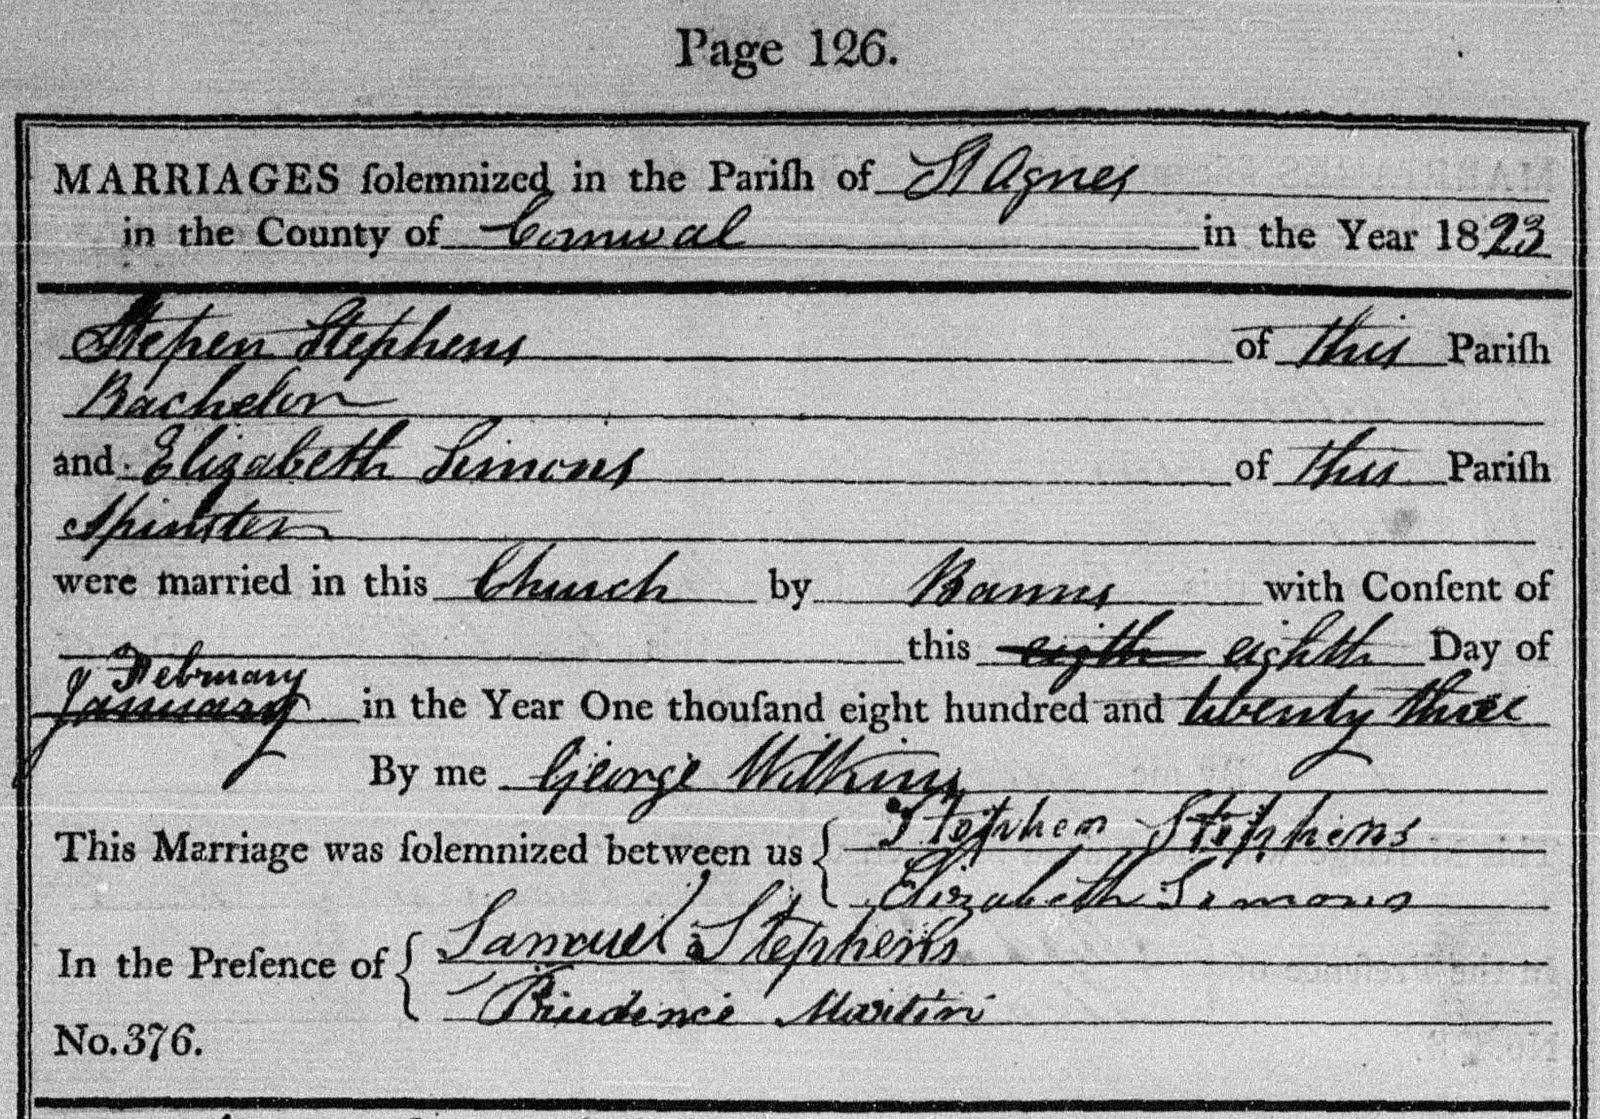 Page 126.
MARRIAGES ſolemnized in the Pariſh of St Agnes
in the County of Cornwal in the Year 1823
Stepen Stephens of this Pariſh
Bachelor
and Elizabeth Simons of this Pariſh
Spinster
were married in this Church by Banns with Conſent of
this eigth eighth Day of
February
January in the Year One thouſand eight hundred and twenty three
By me George Wilkins
This Marriage was ſolemnized between us { Stephen Stephens
Elizabeth Simons
In the Preſence of { Samuel Stephens
Prudence Martin
No. 376.